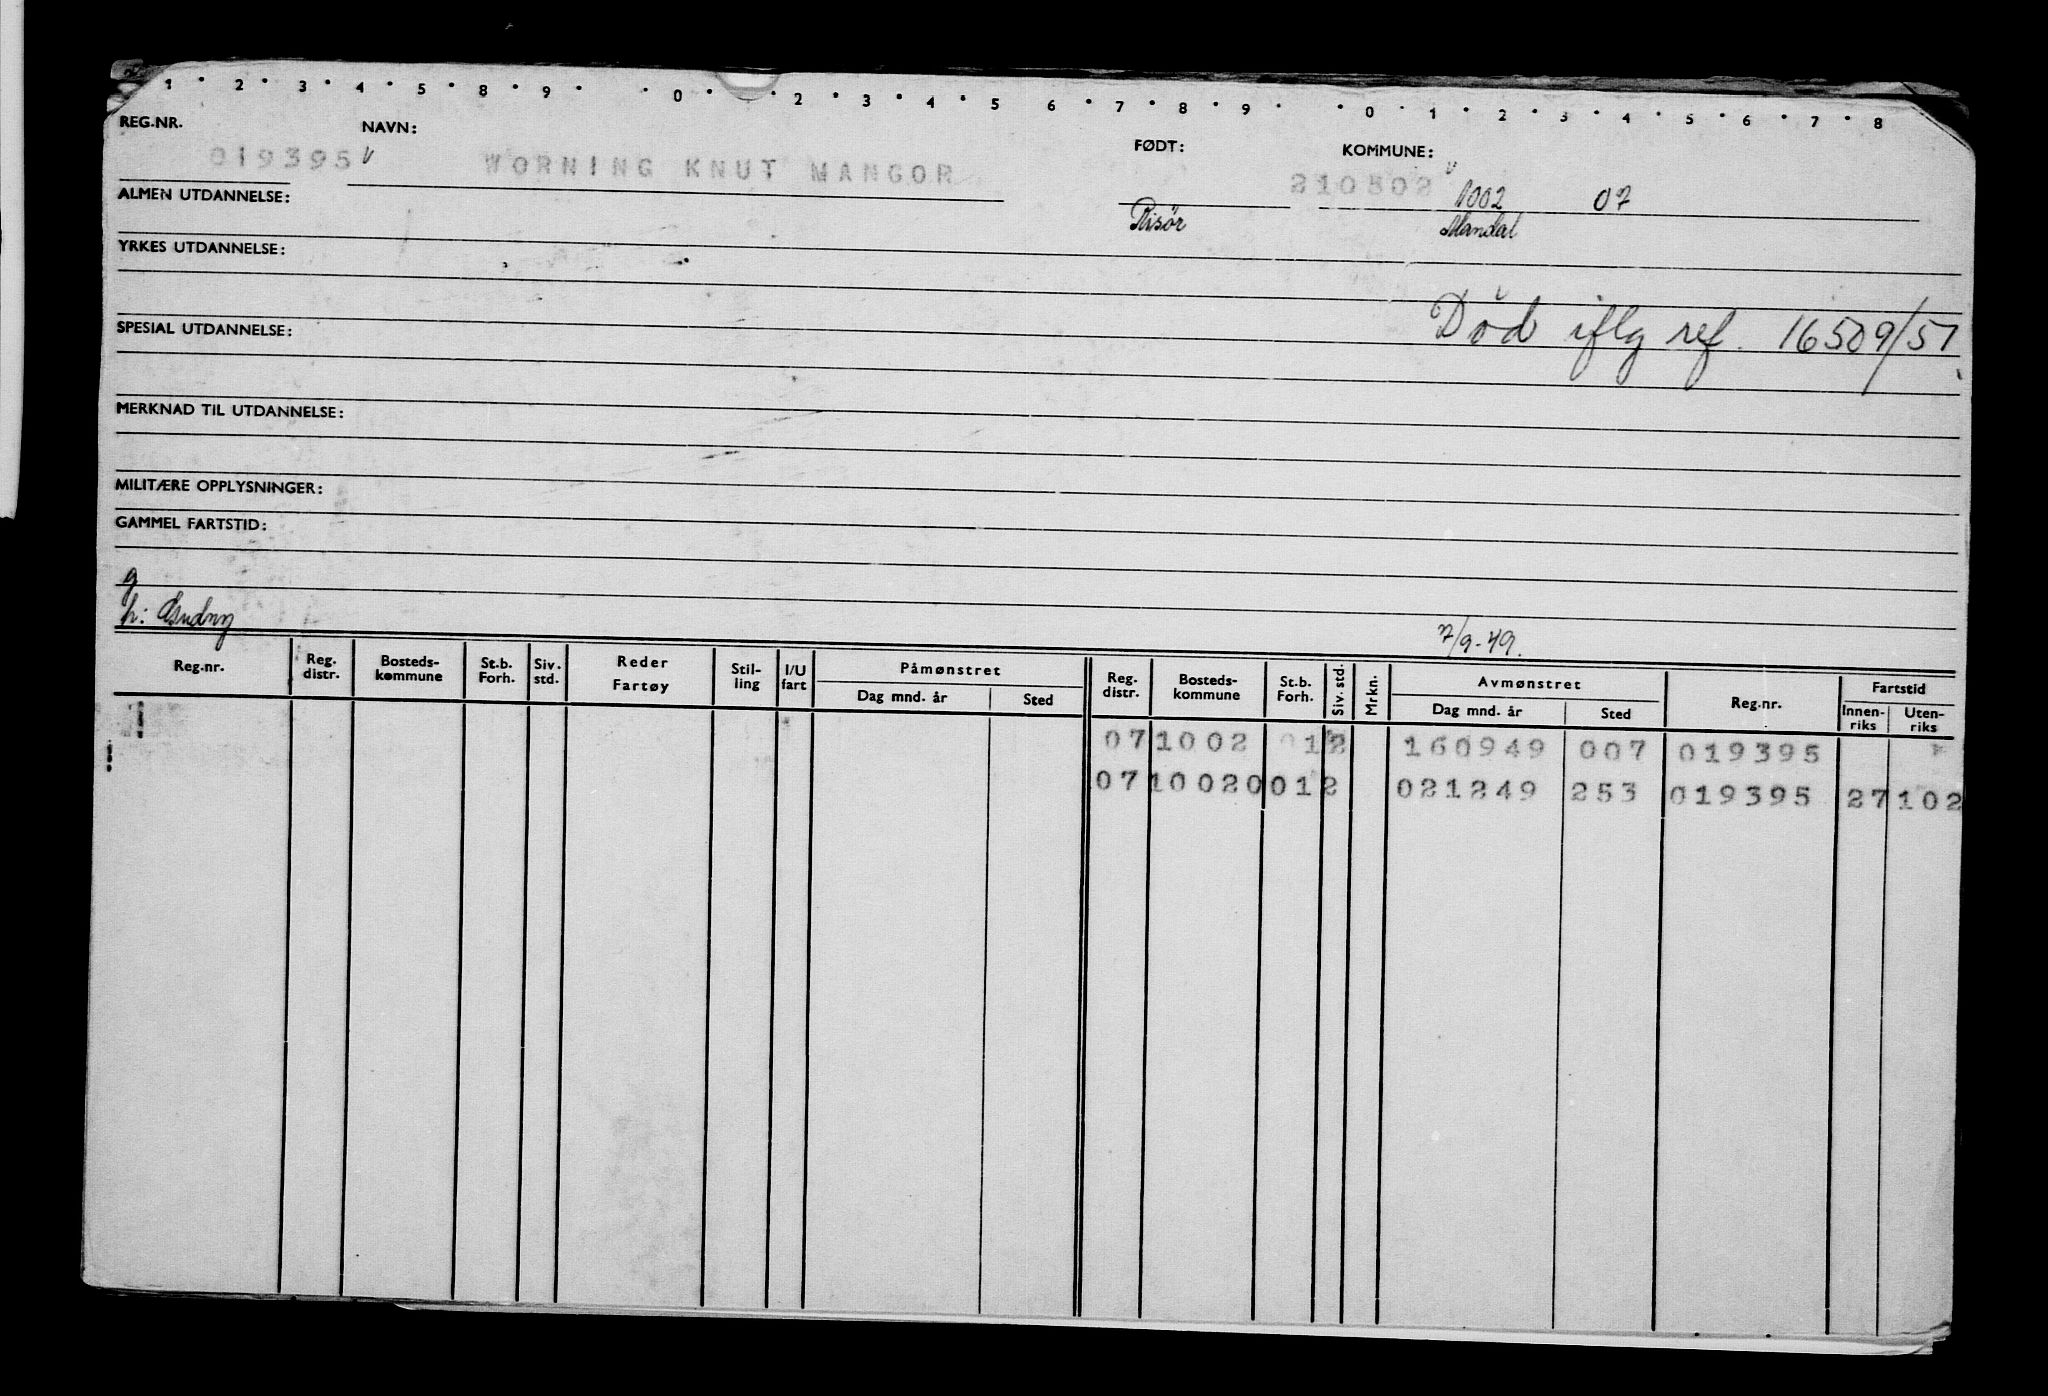 1 2 3 4 5 8 9 0 2 3 4 5 6 7 8 9 0 1 2 3 4 5 6 7 8
REG.NR. NAVN: FØDT: KOMMUNE:
019395 v WORNING KNUT MANGOR 210502 v 1002 07
ALMEN UTDANNELSE: Risør Mandal
YRKES UTDANNELSE:
Død iflg ref. 16509/51
SPESIAL UTDANNELSE:
MERKNAD TIL UTDANNELSE:
MILITÆRE OPPLYSNINGER:
GAMMEL FARTSTID:
g
h: Gudny 7/9-49.
Reg.nr. Reg. distr. Bosteds-kommune St.b. Forh. Siv. std. Reder Fartøy Stil-ling I/U fart Påmønstret Dag mnd. år Sted Reg. distr. Bosteds-kommune St.b. Forh. Siv. std. Mrkn. Avmønstret Dag mnd. år Sted Reg.nr. Fartstid Innen-riks Uten-riks
07 1002 012 160949 007 019395
07 10020012 021249 253 019395 27 102